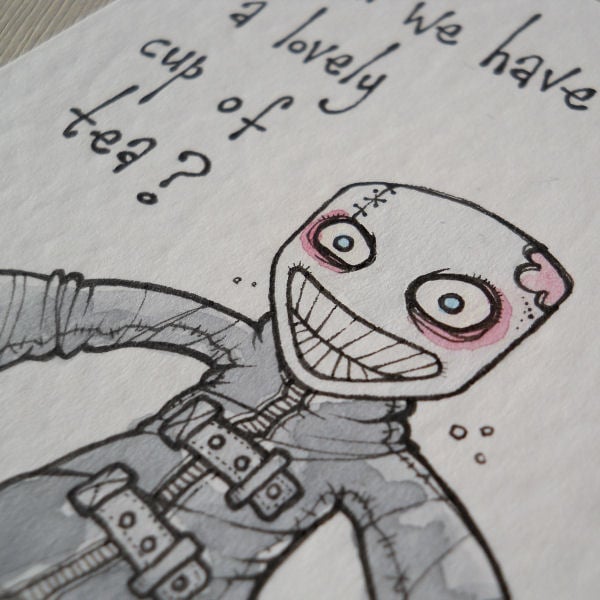 we have
a lovely
cup of
tea?